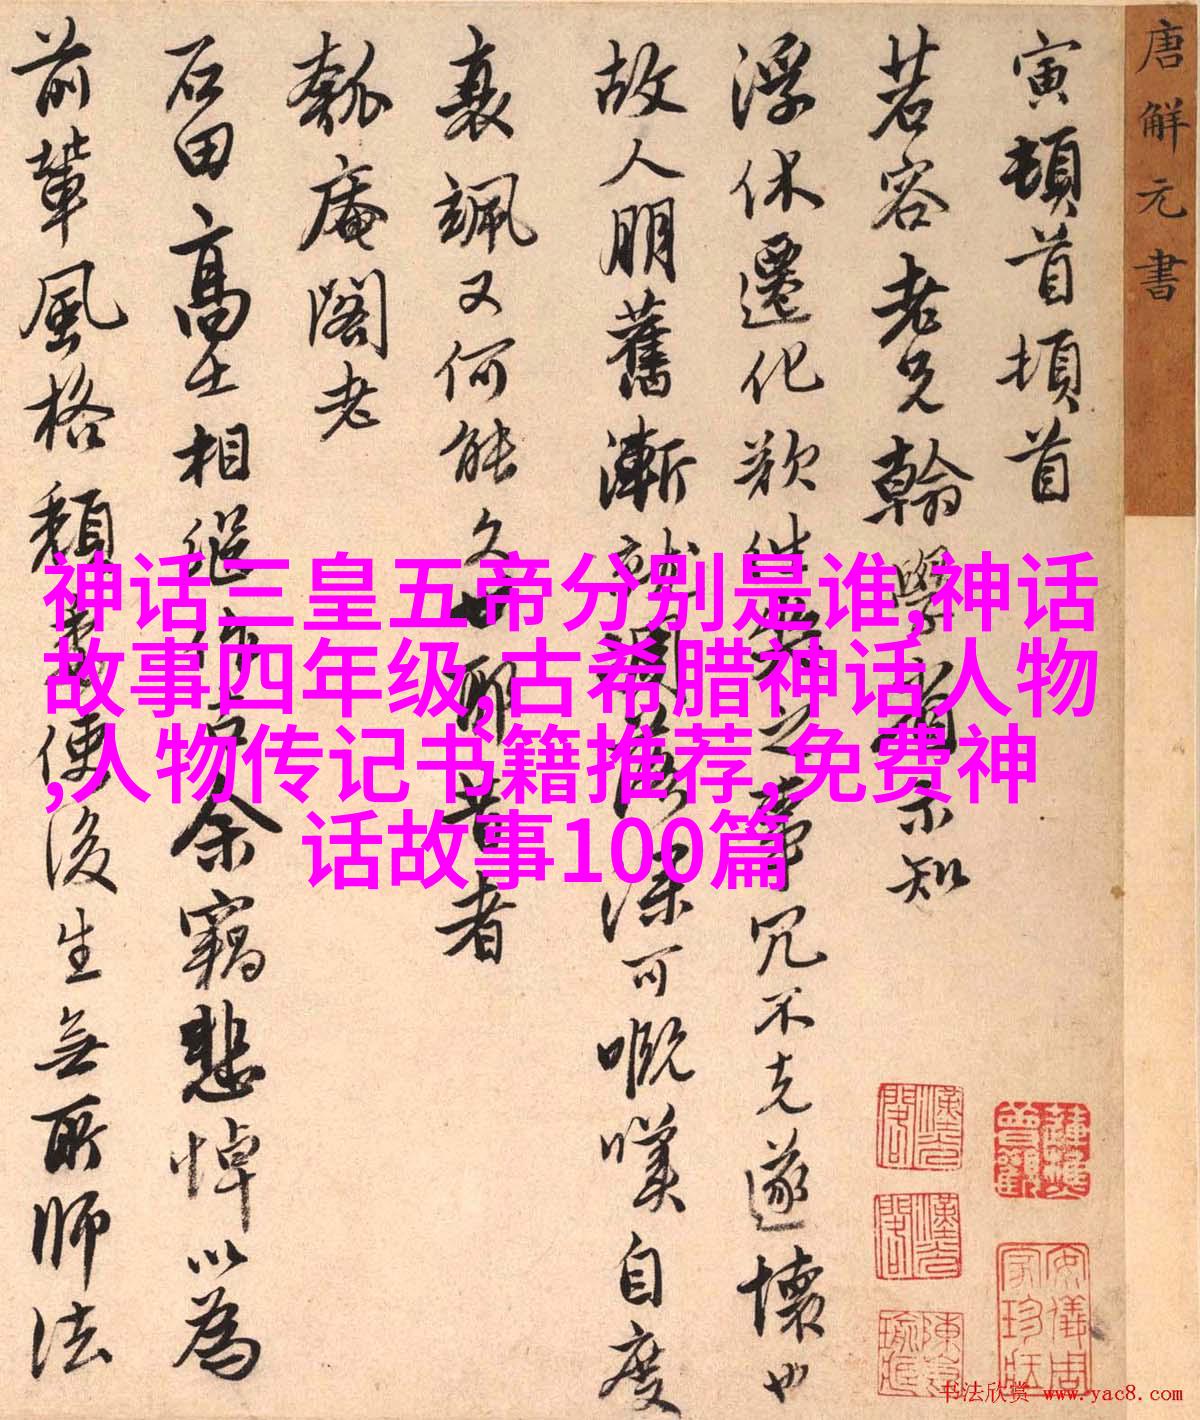 唐解元書
寅頓首頓首
茗容老兄翰學
知
浮休遷化欲
冗不克遂壞也
故人朋舊漸就凋落
深可嘅嘆自度
衰颯又何能久世耶昔者
瓠庵閣老
石田高士相繼作古余竊悲悼以為
前輩風格
便後生無所師法
神话三皇五帝分别是谁,神话
故事四年级,古希腊神话人物
,人物传记书籍推荐,免费神
话故事100篇
书法欣赏 www.yac8.com